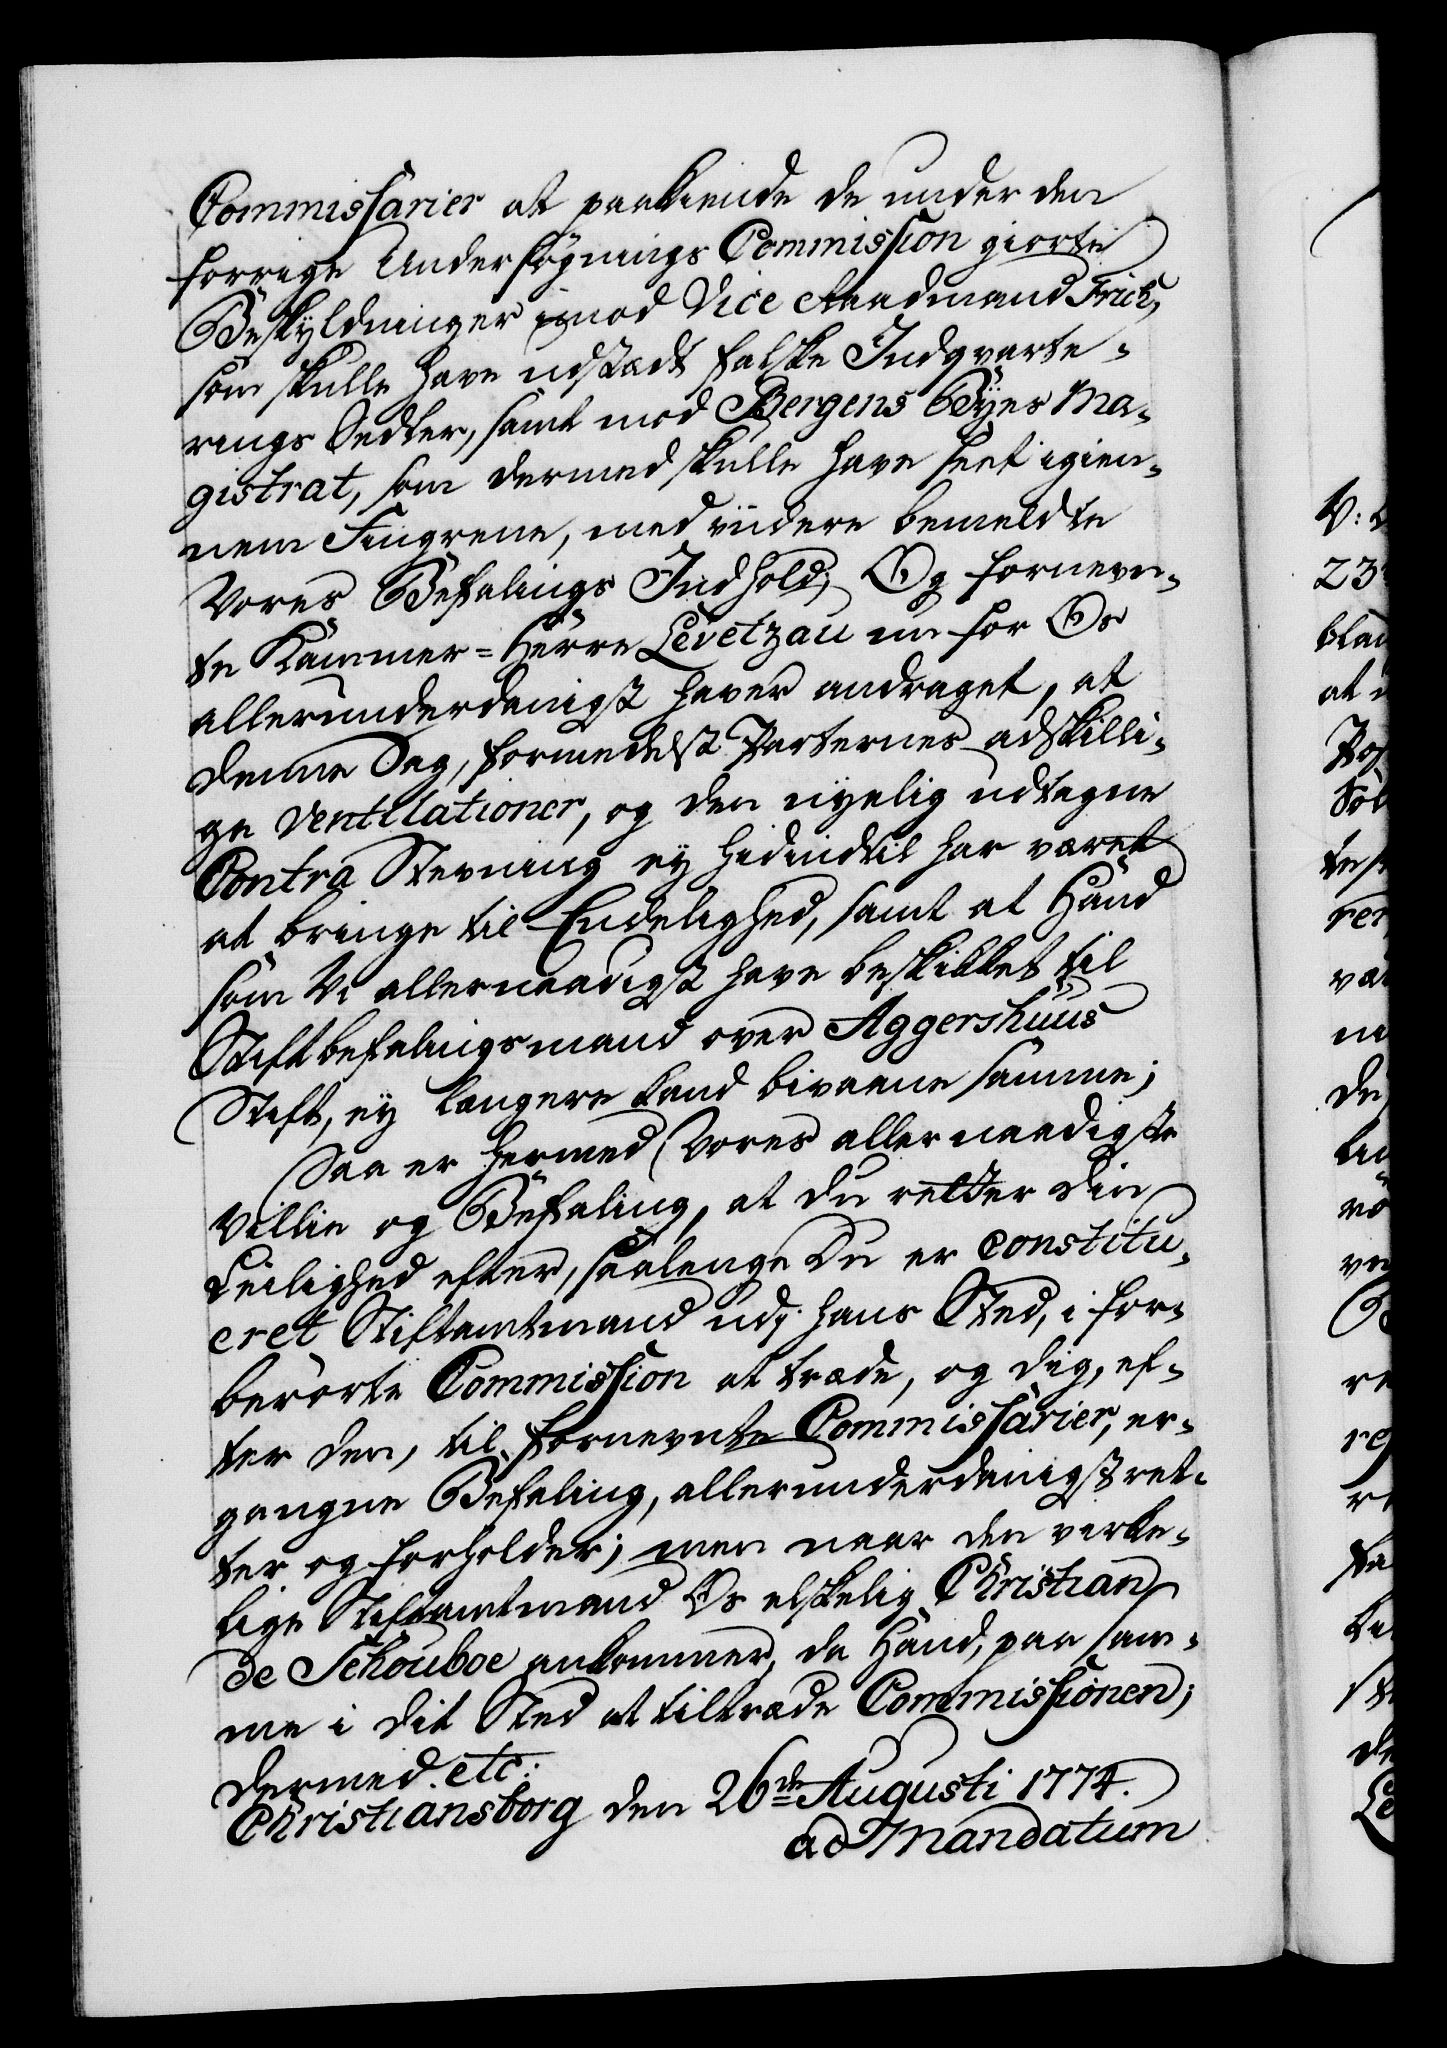 Commissarier at paakiende de under den
forrige Undersøgnings Commission giorte
Beskyldninger imod Vice Raadmand Frich,
som skulle have udstædt falske Indqvarte-
rings Sedler, samt mod Bergens Byes Ma-
gistrat, som dermed skulle have seet igien-
nem Fingrene, med viidere bemeldte
Vores Befalings Indhold; Og fornevn-
te Kammer-Herre Levetzau nu for Os
allerunderdanigst haver andraget, at
denne Sag, formedelst Parternes adskilli-
ge Ventilationer, og den nyelig udtagne
Contra Stevning ey hidindtil har været
at bringe til Endelighed, samt at Hand
som Vi allernaadigst have beskikket til
Stiftbefalingsmand over Aggershuus
Stift, ey længere kand bivaane samme;
Saa er hermed Vores allernaadigste
Villie og Befaling, at du retter din
Leilighed efter, saalenge Du er constitu-
eret Stiftamtmand udj hans Sted, i for-
berørte Commission at træde, og dig, ef-
ter den, til fornevnte Commissarier, er-
gangne Befaling, allerunderdanigst ret-
ter og forholder; men naar den virke-
lige Stiftamtmand Os elskelig Christian
de Schouboe ankommer, da Hand, paa sam-
me i dit Sted at tiltræde Commissionen;
dermed etc:
Christiansborg den 26de Augusti 1774.
ad Mandatum